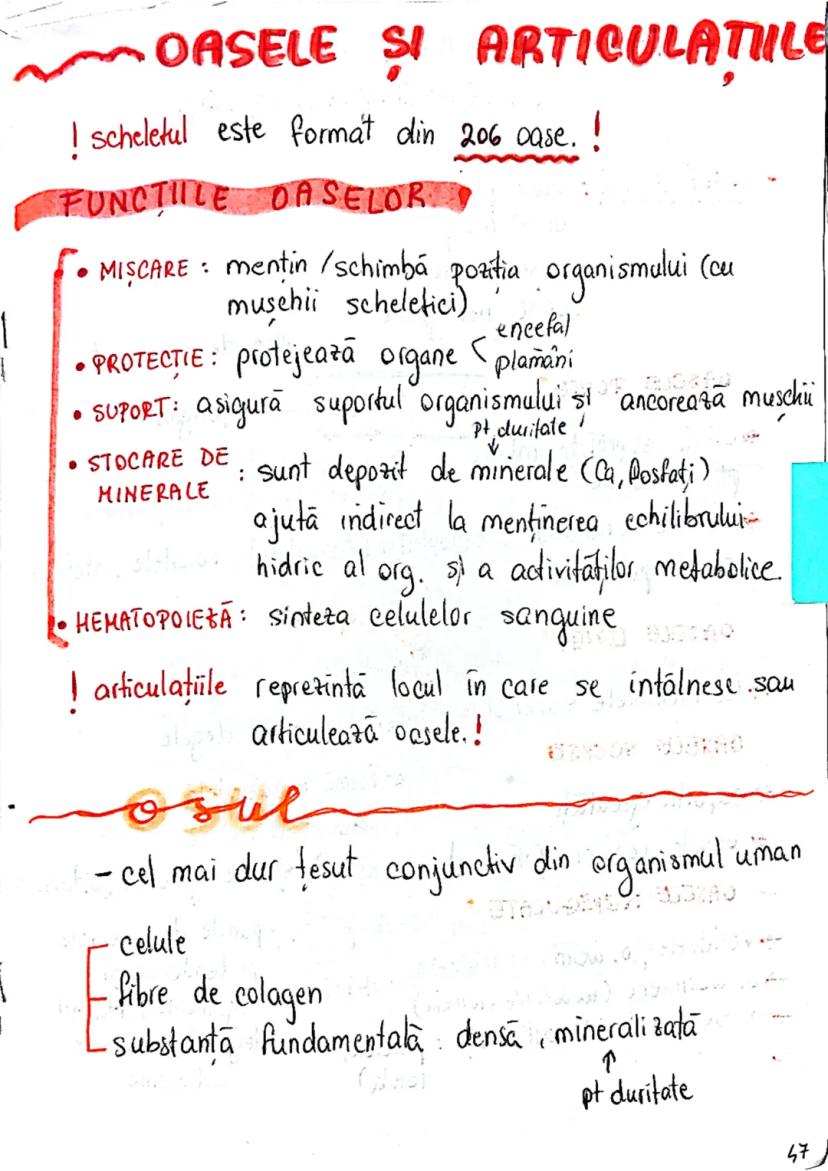 OASELE ȘI ARTICULAȚIILE
! scheletul este format din 206 oase. !
FUNCȚIILE OASELOR
• MIȘCARE : mențin / schimbă poziția organismului (cu
mușchii scheletici)
• PROTECȚIE : protejează organe < encefal
plămâni
• SUPORT : asigură suportul organismului și ancorează mușchii
pt duritate
↓
• STOCARE DE MINERALE : sunt depozit de minerale (Ca, fosfați)
ajută indirect la menținerea echilibrului
hidric al org. și a activităților metabolice.
• HEMATOPOIEZĂ : sinteza celulelor sanguine
! articulațiile reprezintă locul în care se întâlnesc sau
articulează oasele. !
osul
- cel mai dur țesut conjunctiv din organismul uman
celule
fibre de colagen
substanță fundamentală densă, mineralizată
↑
pt duritate
47